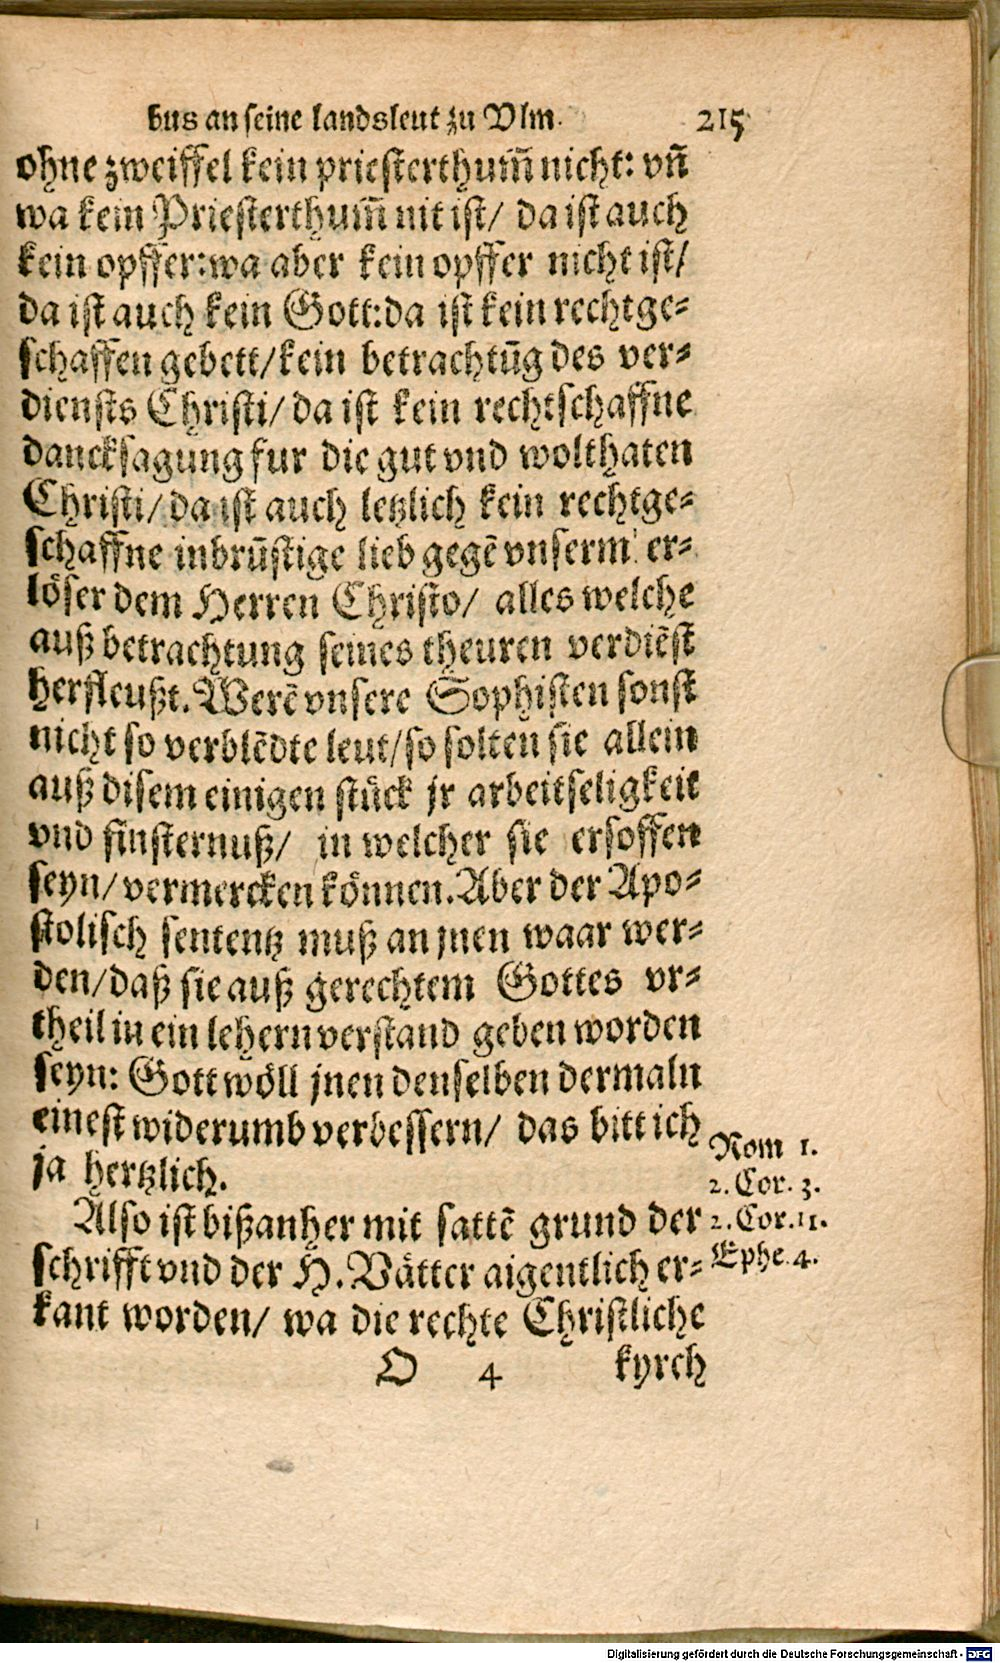 bus an seine landsleut zu Vlm. 215
ohne zweiffel kein priesterthum̃ nicht: vñ
wa kein Priesterthum̃ nit ist/ da ist auch
kein opffer: wa aber kein opffer nicht ist/
da ist auch kein Gott: da ist kein rechtge-
schaffen gebett/ kein betrachtũg des ver-
diensts Christi/ da ist kein rechtschaffne
dancksagung fur die gut vnd wolthaten
Christi/ da ist auch letzlich kein rechtge-
schaffne inbrũstige lieb gegẽ vnserm er-
löser dem Herren Christo/ alles welche
auß betrachtung seines theuren verdiẽst
herfleußt. Werẽ vnsere Sophisten sonst
nicht so verblẽdte leut/ so solten sie allein
auß disem einigen stück jr arbeitseligkeit
vnd finsternuß/ in welcher sie ersoffen
seyn/ vermercken können. Aber der Apo-
stolisch sententz muß an jnen waar wer-
den/ daß sie auß gerechtem Gottes vr-
theil in ein lehern verstand geben worden
seyn: Gott wöll jnen denselben dermaln
einest widerumb verbessern/ das bitt ich
ja hertzlich.
Rom 1.
2. Cor. 3.
2. Cor. 11.
Ephe. 4.
Also ist bißanher mit sattẽ grund der
schrifft vnd der H. Vätter aigentlich er-
kant worden/ wa die rechte Christliche
O 4 kyrch
Digitalisierung gefördert durch die Deutsche Forschungsgemeinschaft - DFG